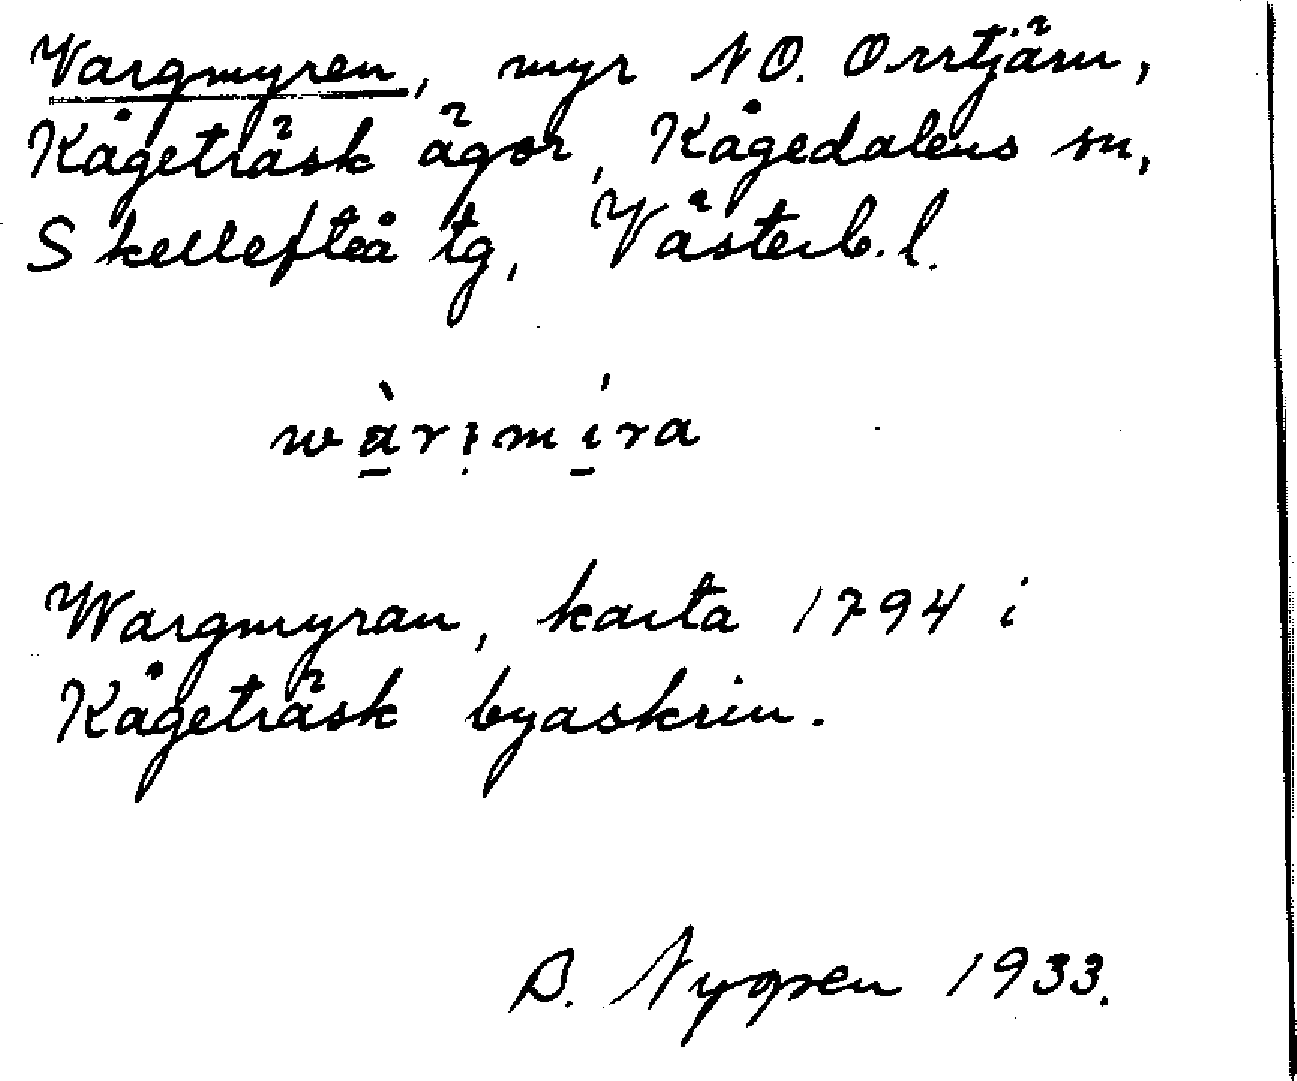 Vargmyren, myr NO. Orrtjärn,
Kågeträsk ägor, Kågedalens sn,
Skellefteå tg, Västerb. l.
wàrımíra
Wargmyran, karta 1794 i
Kågeträsk byaskrin.
B. Nygren 1933.